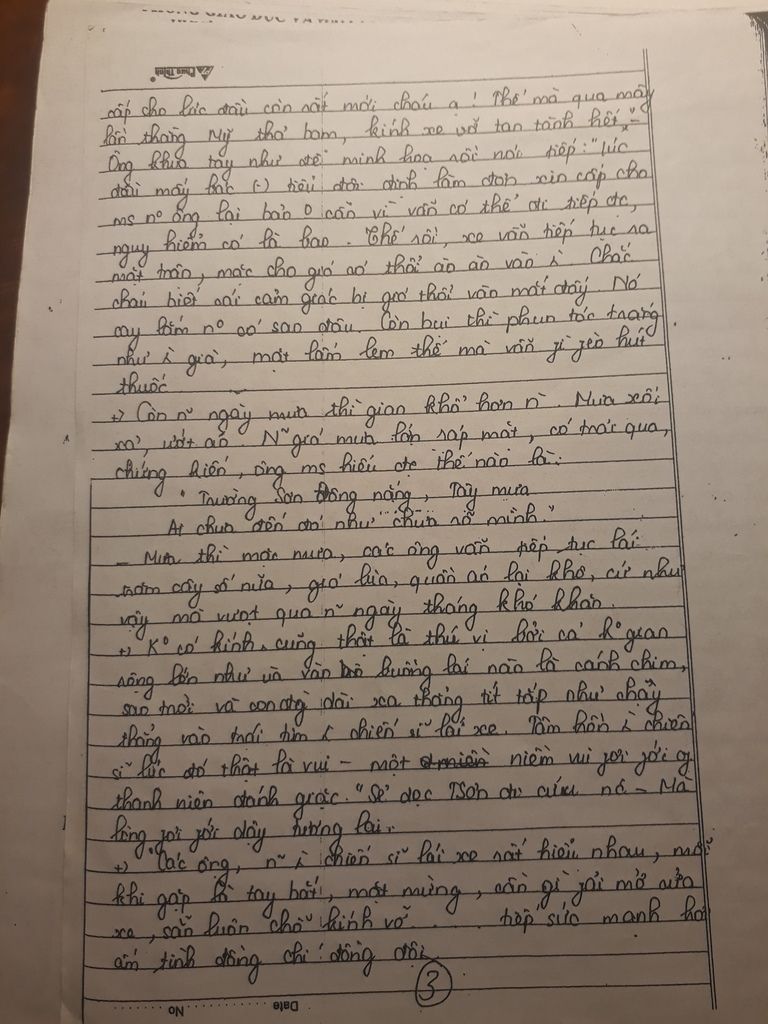 cấp cho lúc đầu còn rất mới cháu ạ! Thế mà qua mấy
lần thằng Mỹ thả bom, kính xe vỡ tan tành hết." -
Ông khua tay như để minh hoạ rồi nói tiếp: "Lúc
đầu mấy bác (-) tiểu đội định làm đơn xin cấp cho
ms nº ông lại bảo 0 cần vì vẫn có thể đi tiếp đc,
nguy hiểm có là bao. Thế rồi, xe vẫn tiếp tục ra
mặt trận, mặc cho gió cứ thổi ào ào vào
cháu biết cái cảm giác bị gió thổi vào mắt đấy. Nó
cay lắm nº có sao đâu. Còn bụi thì phun tóc trắng
như già, mặt lấm lem thế mà vẫn phì phèo hút
thuốc
+) Còn ~ ngày mưa thì gian khổ hơn n`. Mưa xối
xả, ướt áo. gió mưa lớn ráp mặt, có trải qua,
chứng kiến, ông ms hiểu đc thế nào là:
"Trường Sơn Đông nắng, Tây mưa
Ai chưa đến đó như chưa rõ mình."
- Mưa thì mặc mưa, các ông vẫn tiếp tục lái
trăm cây số nữa, gió lùa, quần áo lại khô, cứ như
vậy mà vượt qua ~ ngày tháng khó khăn.
+) Kº có kính, cũng thật là thú vị bởi cả kº gian
rộng lớn như ùa vào buồng lái nào là cánh chim,
sao trời và con đg` dài xa thẳng tít tắp như chạy
thẳng vào trái tim chiến sĩ lái xe. Tâm hồn chiến
sĩ lúc đó thật là vui - một niềm vui phơi phới of
thanh niên đánh giặc. "Sẻ dọc TSơn đi cứu nc - Mà
lòng phơi phới dậy tương lai.
+) Các ông, ~ chiến sĩ lái xe rất hiểu nhau, mỗi
khi gặp là tay bắt, mặt mừng, cần gì phải mở cửa
xe, sẵn luôn chỗ kính vỡ ...... tiếp sức mạnh hơi
ấm, tình đồng chí đồng đội.
3
Date No